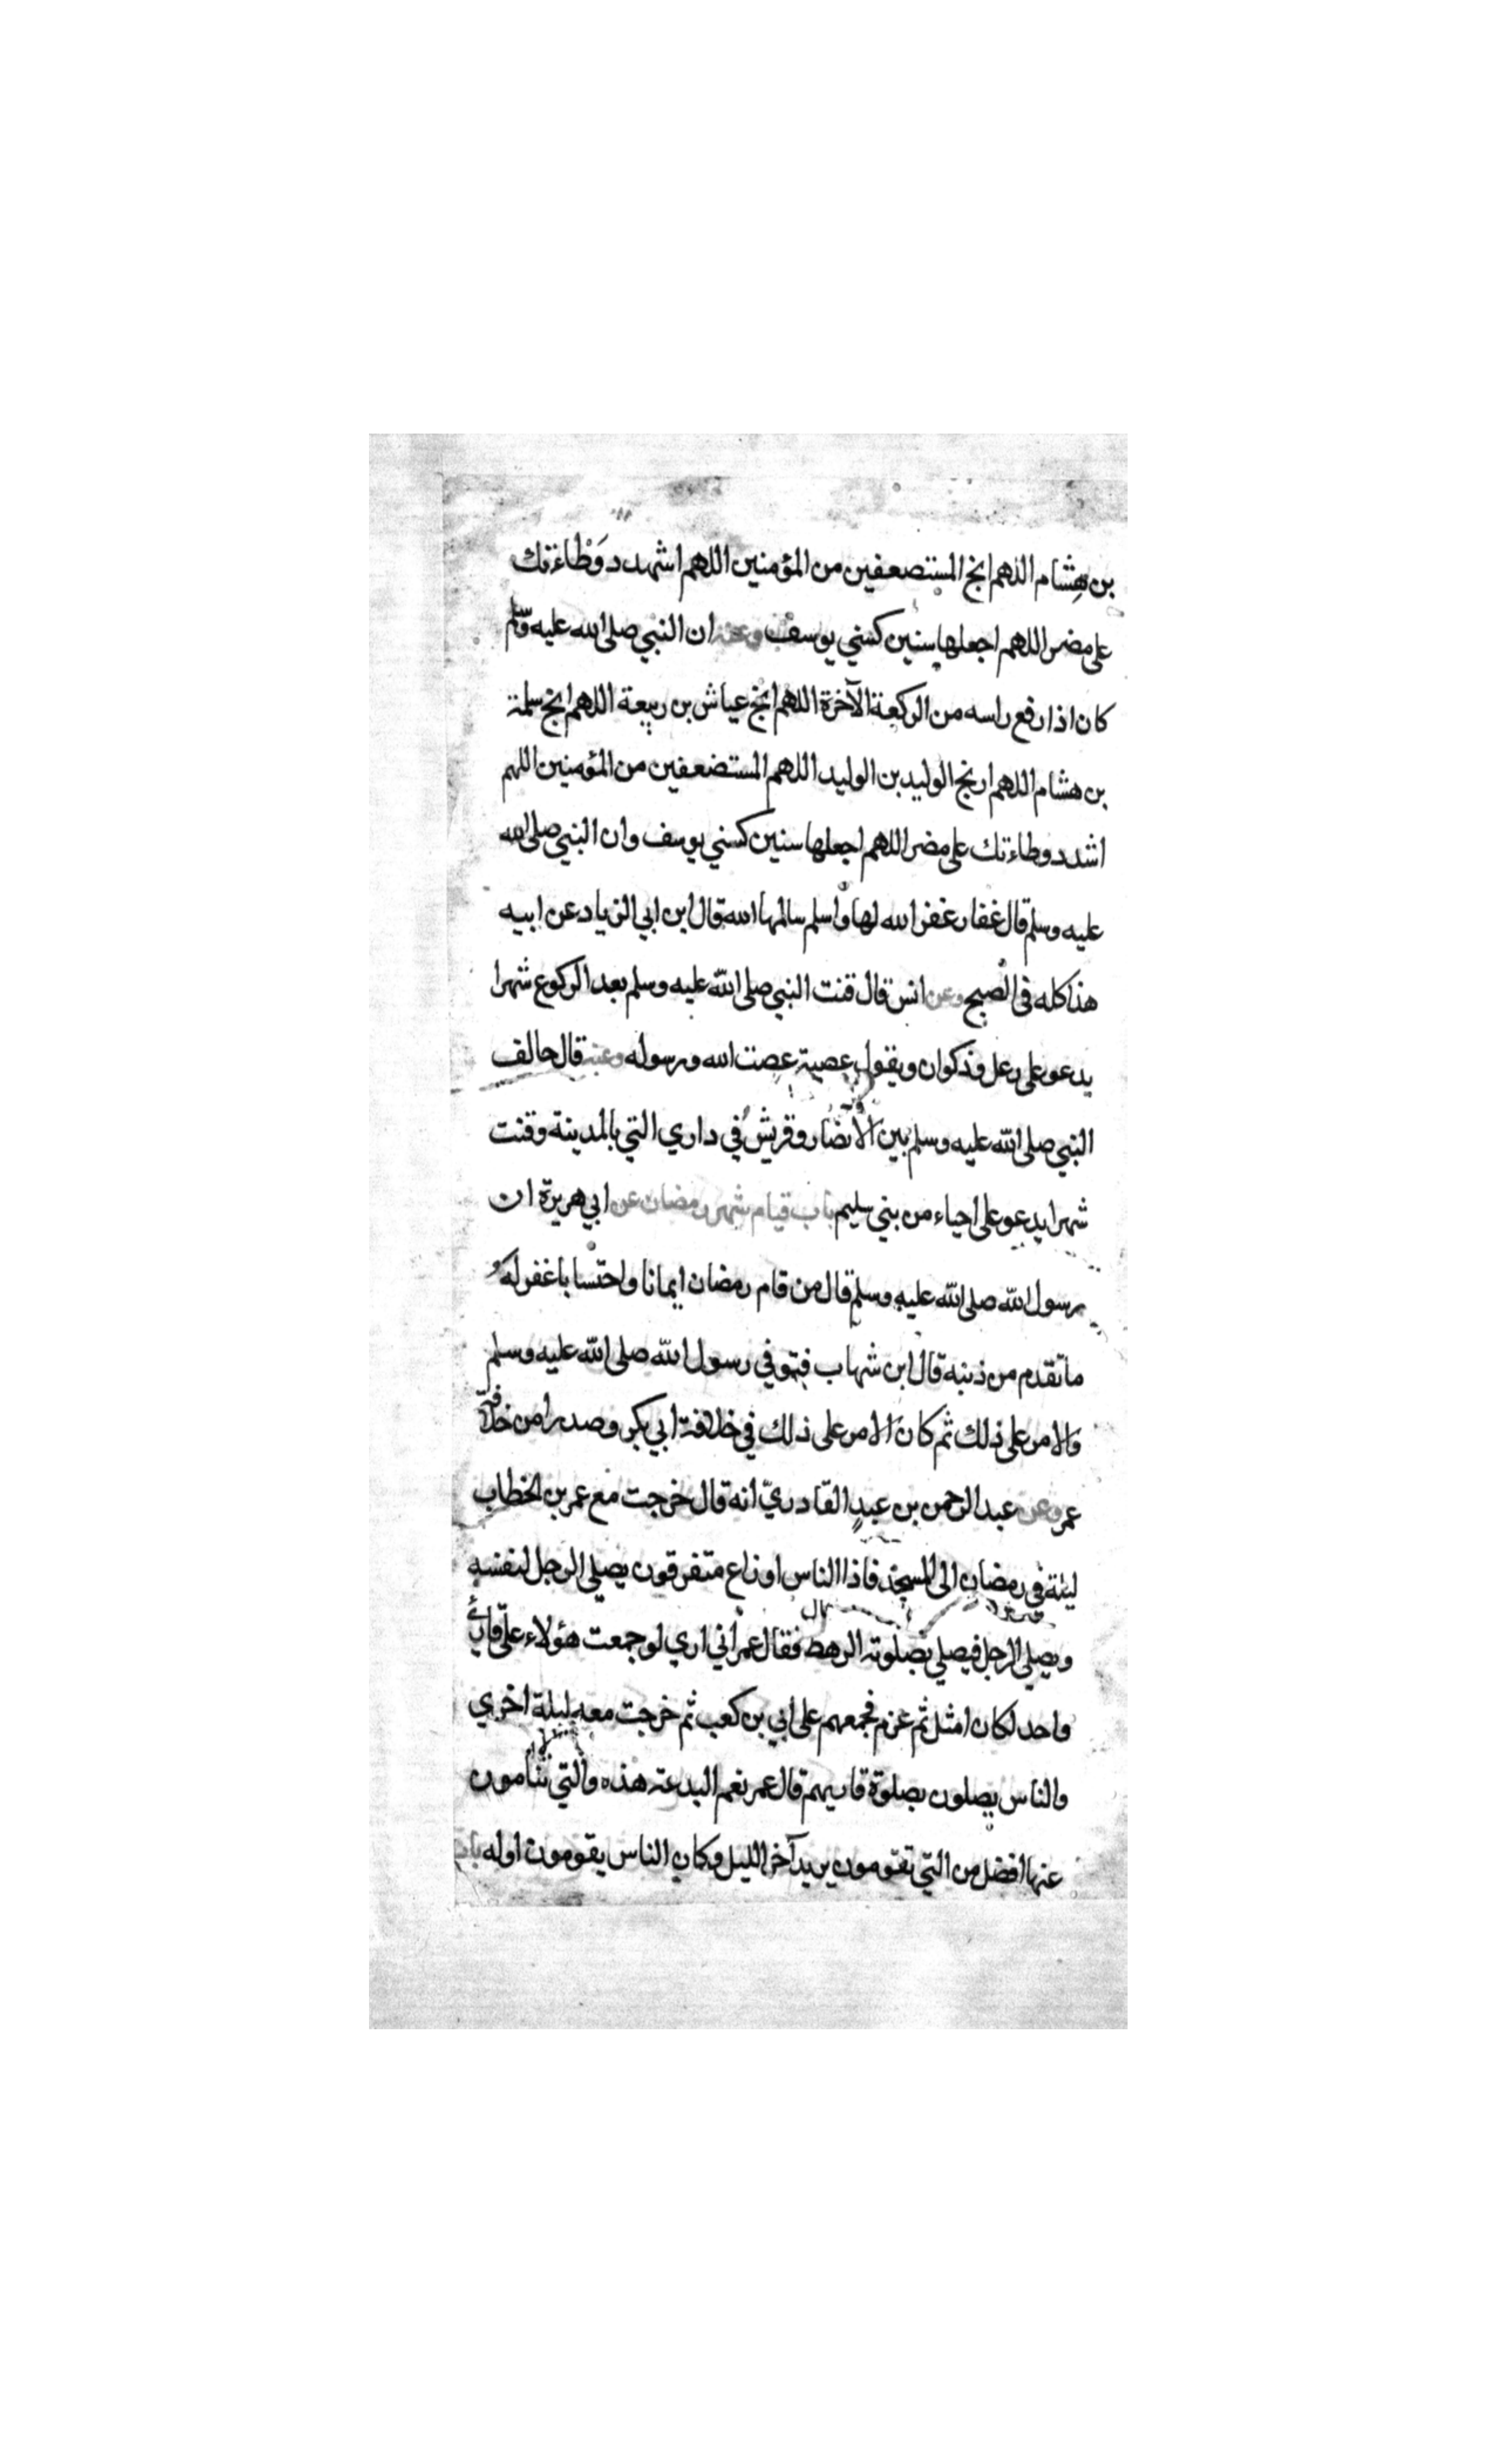 بن هِشام اللهم انج المستضعفين من المؤمنين اللهم اشدد وَطْاءتك
على مضر اللهم اجعلها سنين كسني يوسف وعنه ان النبي صلى الله عليه وسلم
كان اذا رفع راسه من الركعة الآخرة اللهم انج عياش بن ربيعة اللهم انج سلمة
بن هشام اللهم ارنج الوليد بن الوليد اللهم المستضعفين من المؤمنين اللهم
اشدد وطاءتك على مضر اللهم اجعلها سنين كسني يوسف وان النبي صلى الله
عليه وسلم قال غفار غفر الله لها واسلم سالمها الله قال ابن ابي الزياد عن ابيه
هذا كله في الصبح وعن انس قال قنت النبي صلى الله عليه وسلم بعد الركوع شهرا
يدعو على رعل وذكوان ويقول عصية عصت الله ورسوله وعنه قال حالف
النبي صلى الله عليه وسلم بين الانصار وقريش في داري التي بالمدينة وقنت
شهرا يدعو على احياء من بني سليم باب قيام شهر رمضان عن ابي هريرة ان
رسول الله صلى الله عليه وسلم قال من قام رمضان ايمانا واحتسابا غفر له
ما تقدم من ذنبه قال ابن شهاب فتوفي رسول الله صلى الله عليه وسلم
والامر على ذلك ثم كان الامر على ذلك في خلافة ابي بكر وصدرا من خلافة
عمر وعن عبد الرحمن بن عبدٍ القادريّ انه قال خرجت مع عمر بن الخطاب
ليلة في رمضان الى المسجد فاذا الناس اوزاع متفرقون يصلي الرجل لنفسه
ويصلي الرجل فيصلي بصلوته الرهط فقال عمر اني اري لو جمعت هؤلاء على قارئ
واحد لكان امثل ثم عزم فجمعهم على ابي بن كعب ثم خرجت معه ليلة اخري
والناس يصلون بصلوة قاريهم قال عمر نعم البدعة هذه والتي تنامون
عنها افضل من التي تقومون يريد آخر الليل وكان الناس يقومون اوله باب